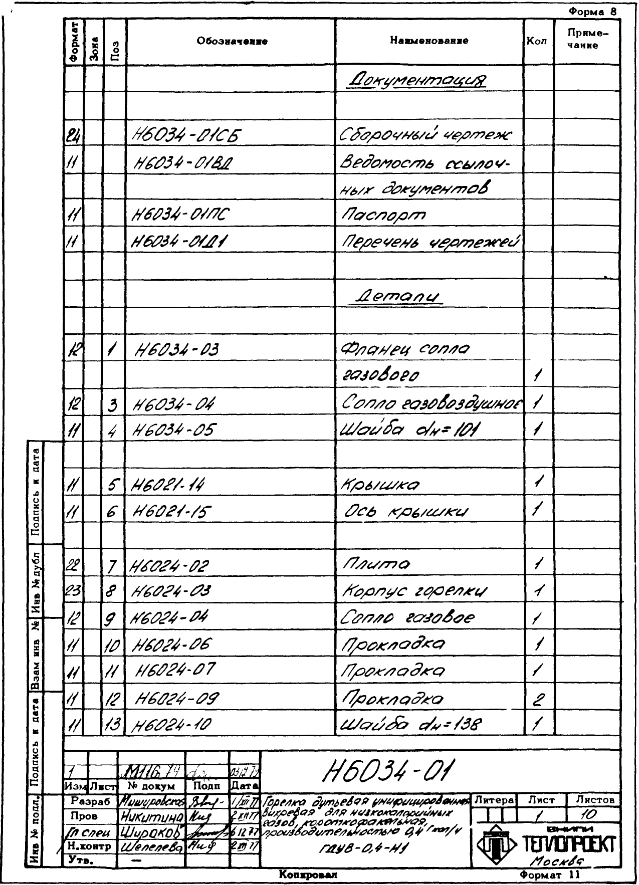 Форма 8
Формат Зона Поз Обозначение Наименование Кол Приме-
чание
Документация
24 Н6034-01СБ Сборочный чертеж
11 Н6034-01ВД Ведомость ссылоч-
ных документов
11 Н6034-01ПС Паспорт
11 Н6034-01Д1 Перечень чертежей
Детали
12 1 Н6034-03 Фланец сопла
газового 1
12 3 Н6034-04 Сопло газовоздушное 1
11 4 Н6034-05 Шайба dн=101 1
11 5 Н6021-14 Крышка 1
11 6 Н6021-15 Ось крышки 1
22 7 Н6024-02 Плита 1
23 8 Н6024-03 Корпус горелки 1
12 9 Н6024-04 Сопло газовое 1
11 10 Н6024-06 Прокладка 1
11 11 Н6024-07 Прокладка 1
11 12 Н6024-09 Прокладка 2
11 13 Н6024-10 Шайба dн=138 1
Подпись и дата
Инв № дубл
Взам инв №
Подпись и дата
Инв № подл.
1
Изм Лист № докум Подп Дата
Н6034-01
Разраб
Пров Никитина
Гл спец Шираков
Н.контр Шепелева
Утв. -
Горелка дутьевая унифицированная
вихревая для низкокалорийных
газов, короткофакельная,
производительностью 0,4 Гкал/ч
ГДУВ-0,4-Н1
Литера Лист Листов
1 10
ВНИПИ
ТЕПЛОПРОЕКТ
Москва
Копировал Формат 11